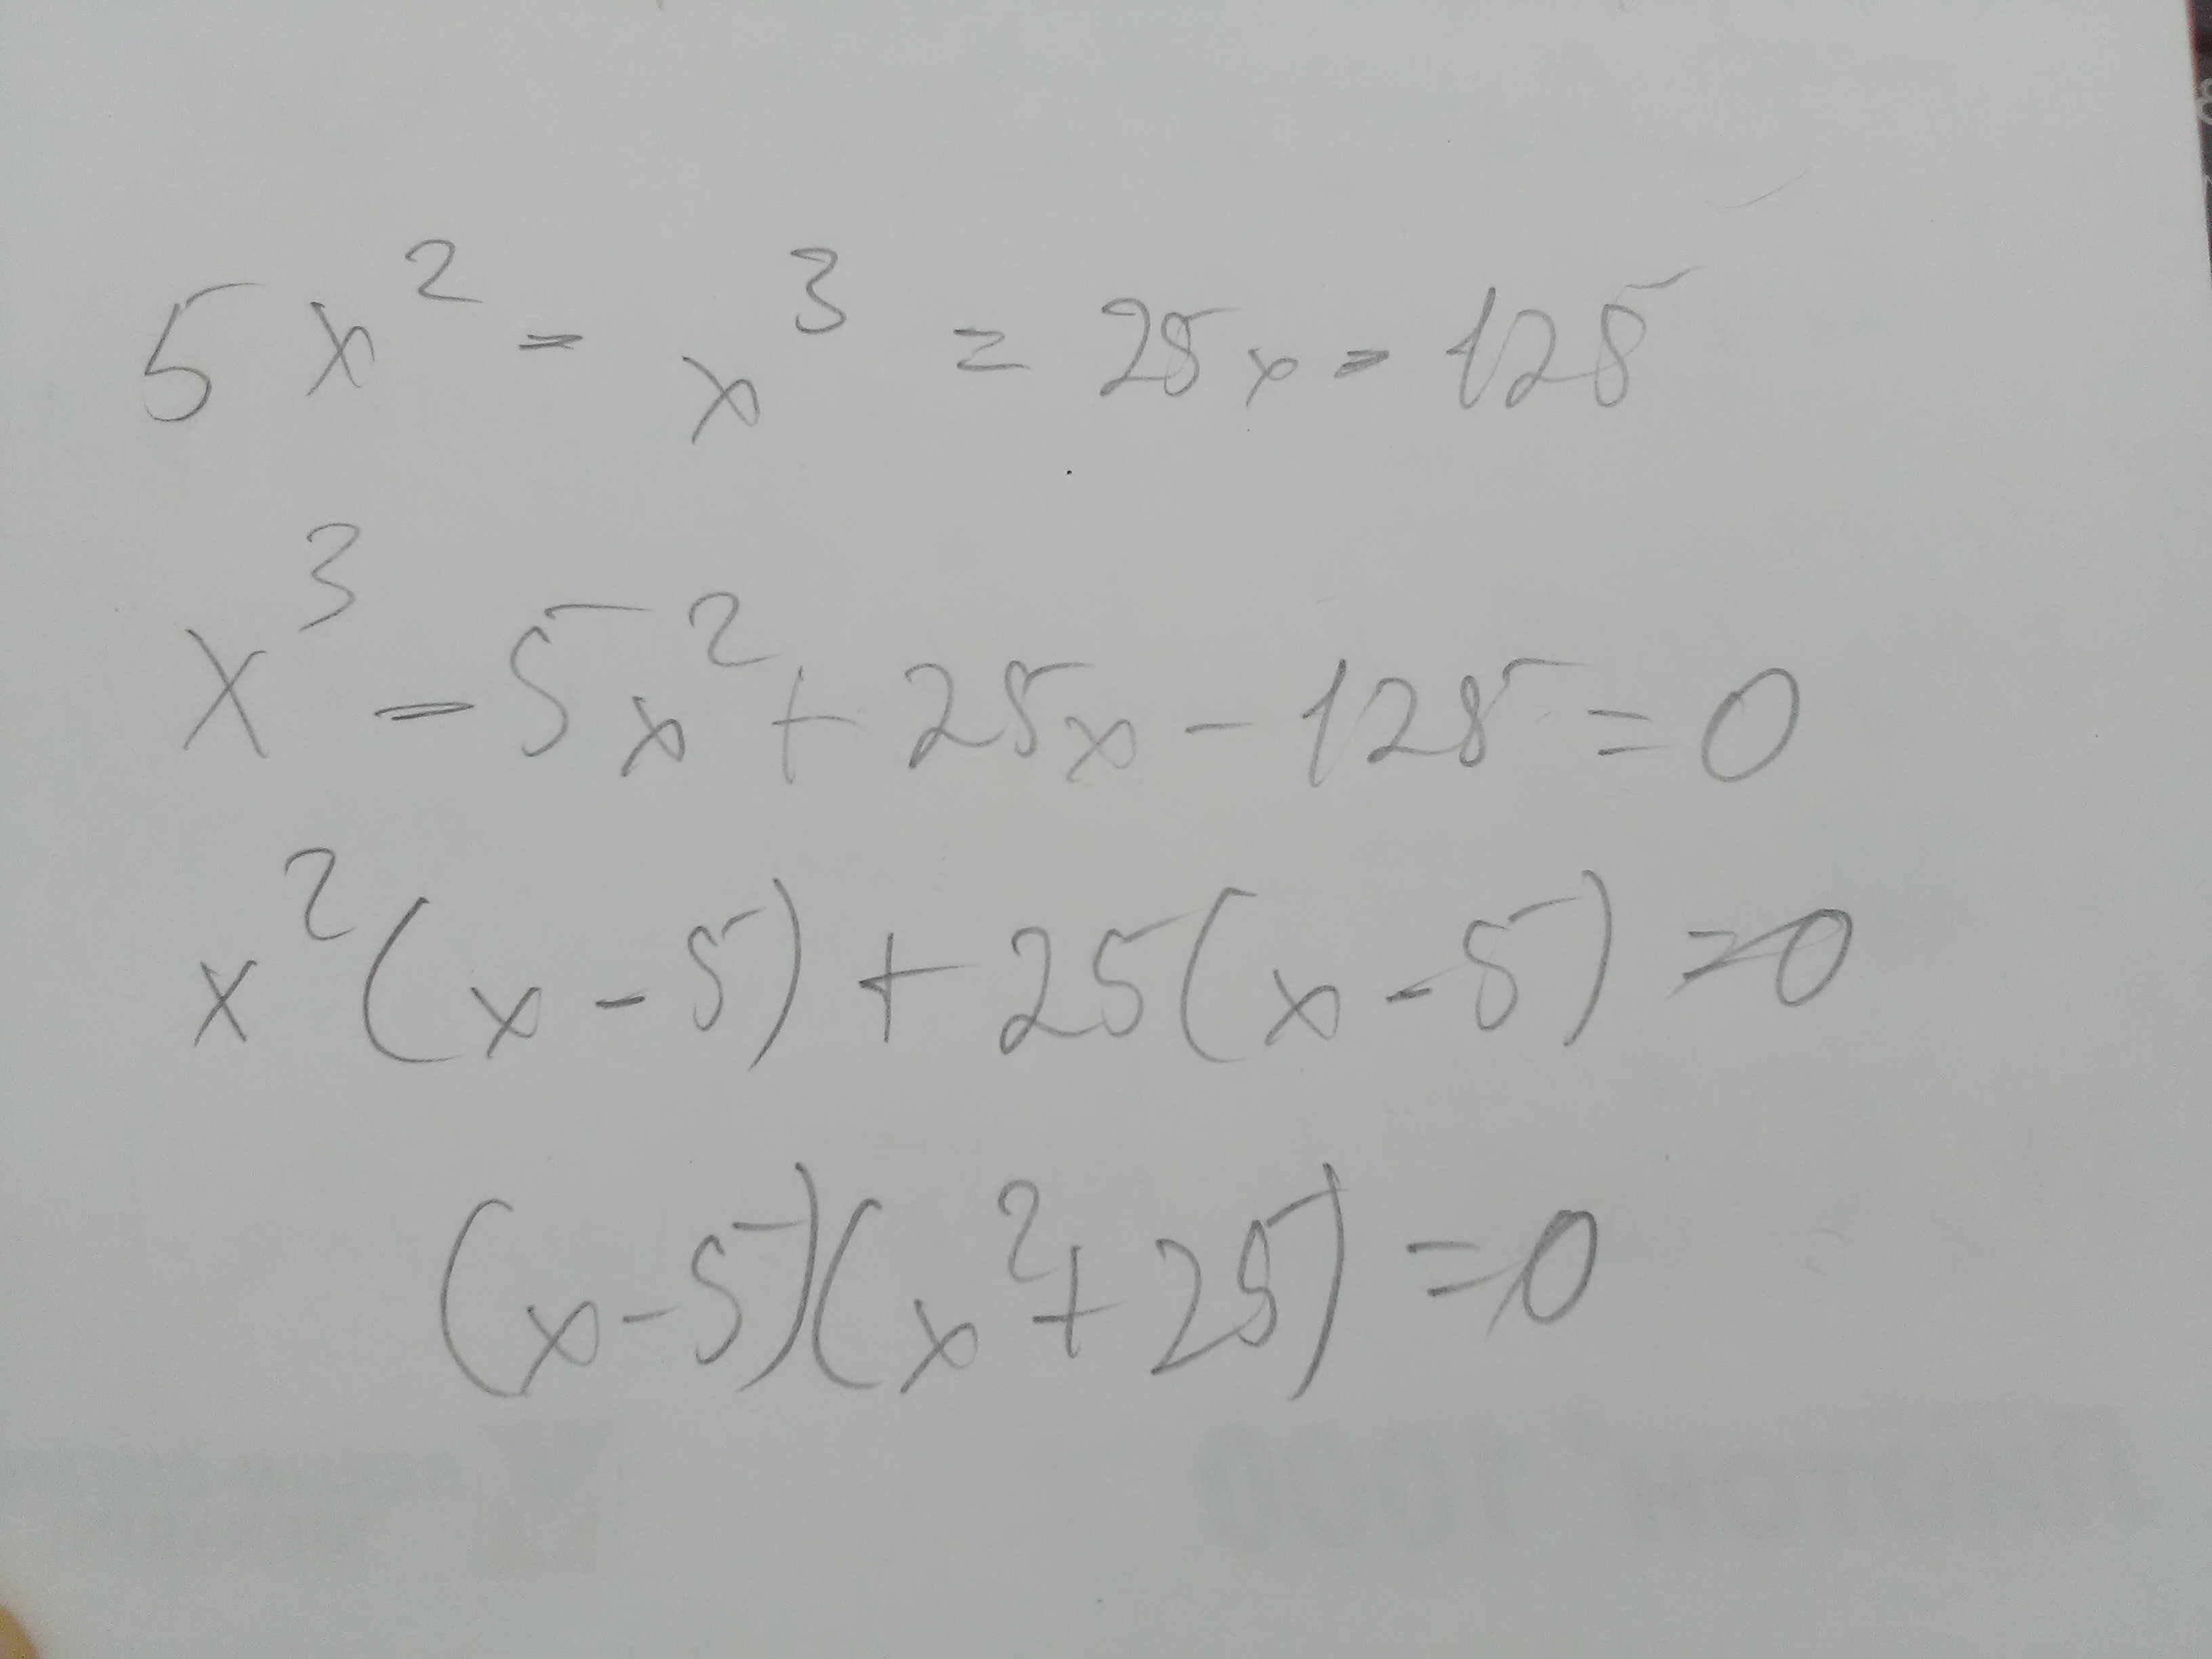 5x² - x³ = 25x - 125
x³ - 5x² + 25x - 125 = 0
x²(x - 5) + 25(x - 5) = 0
(x - 5)(x² + 25) = 0
1000